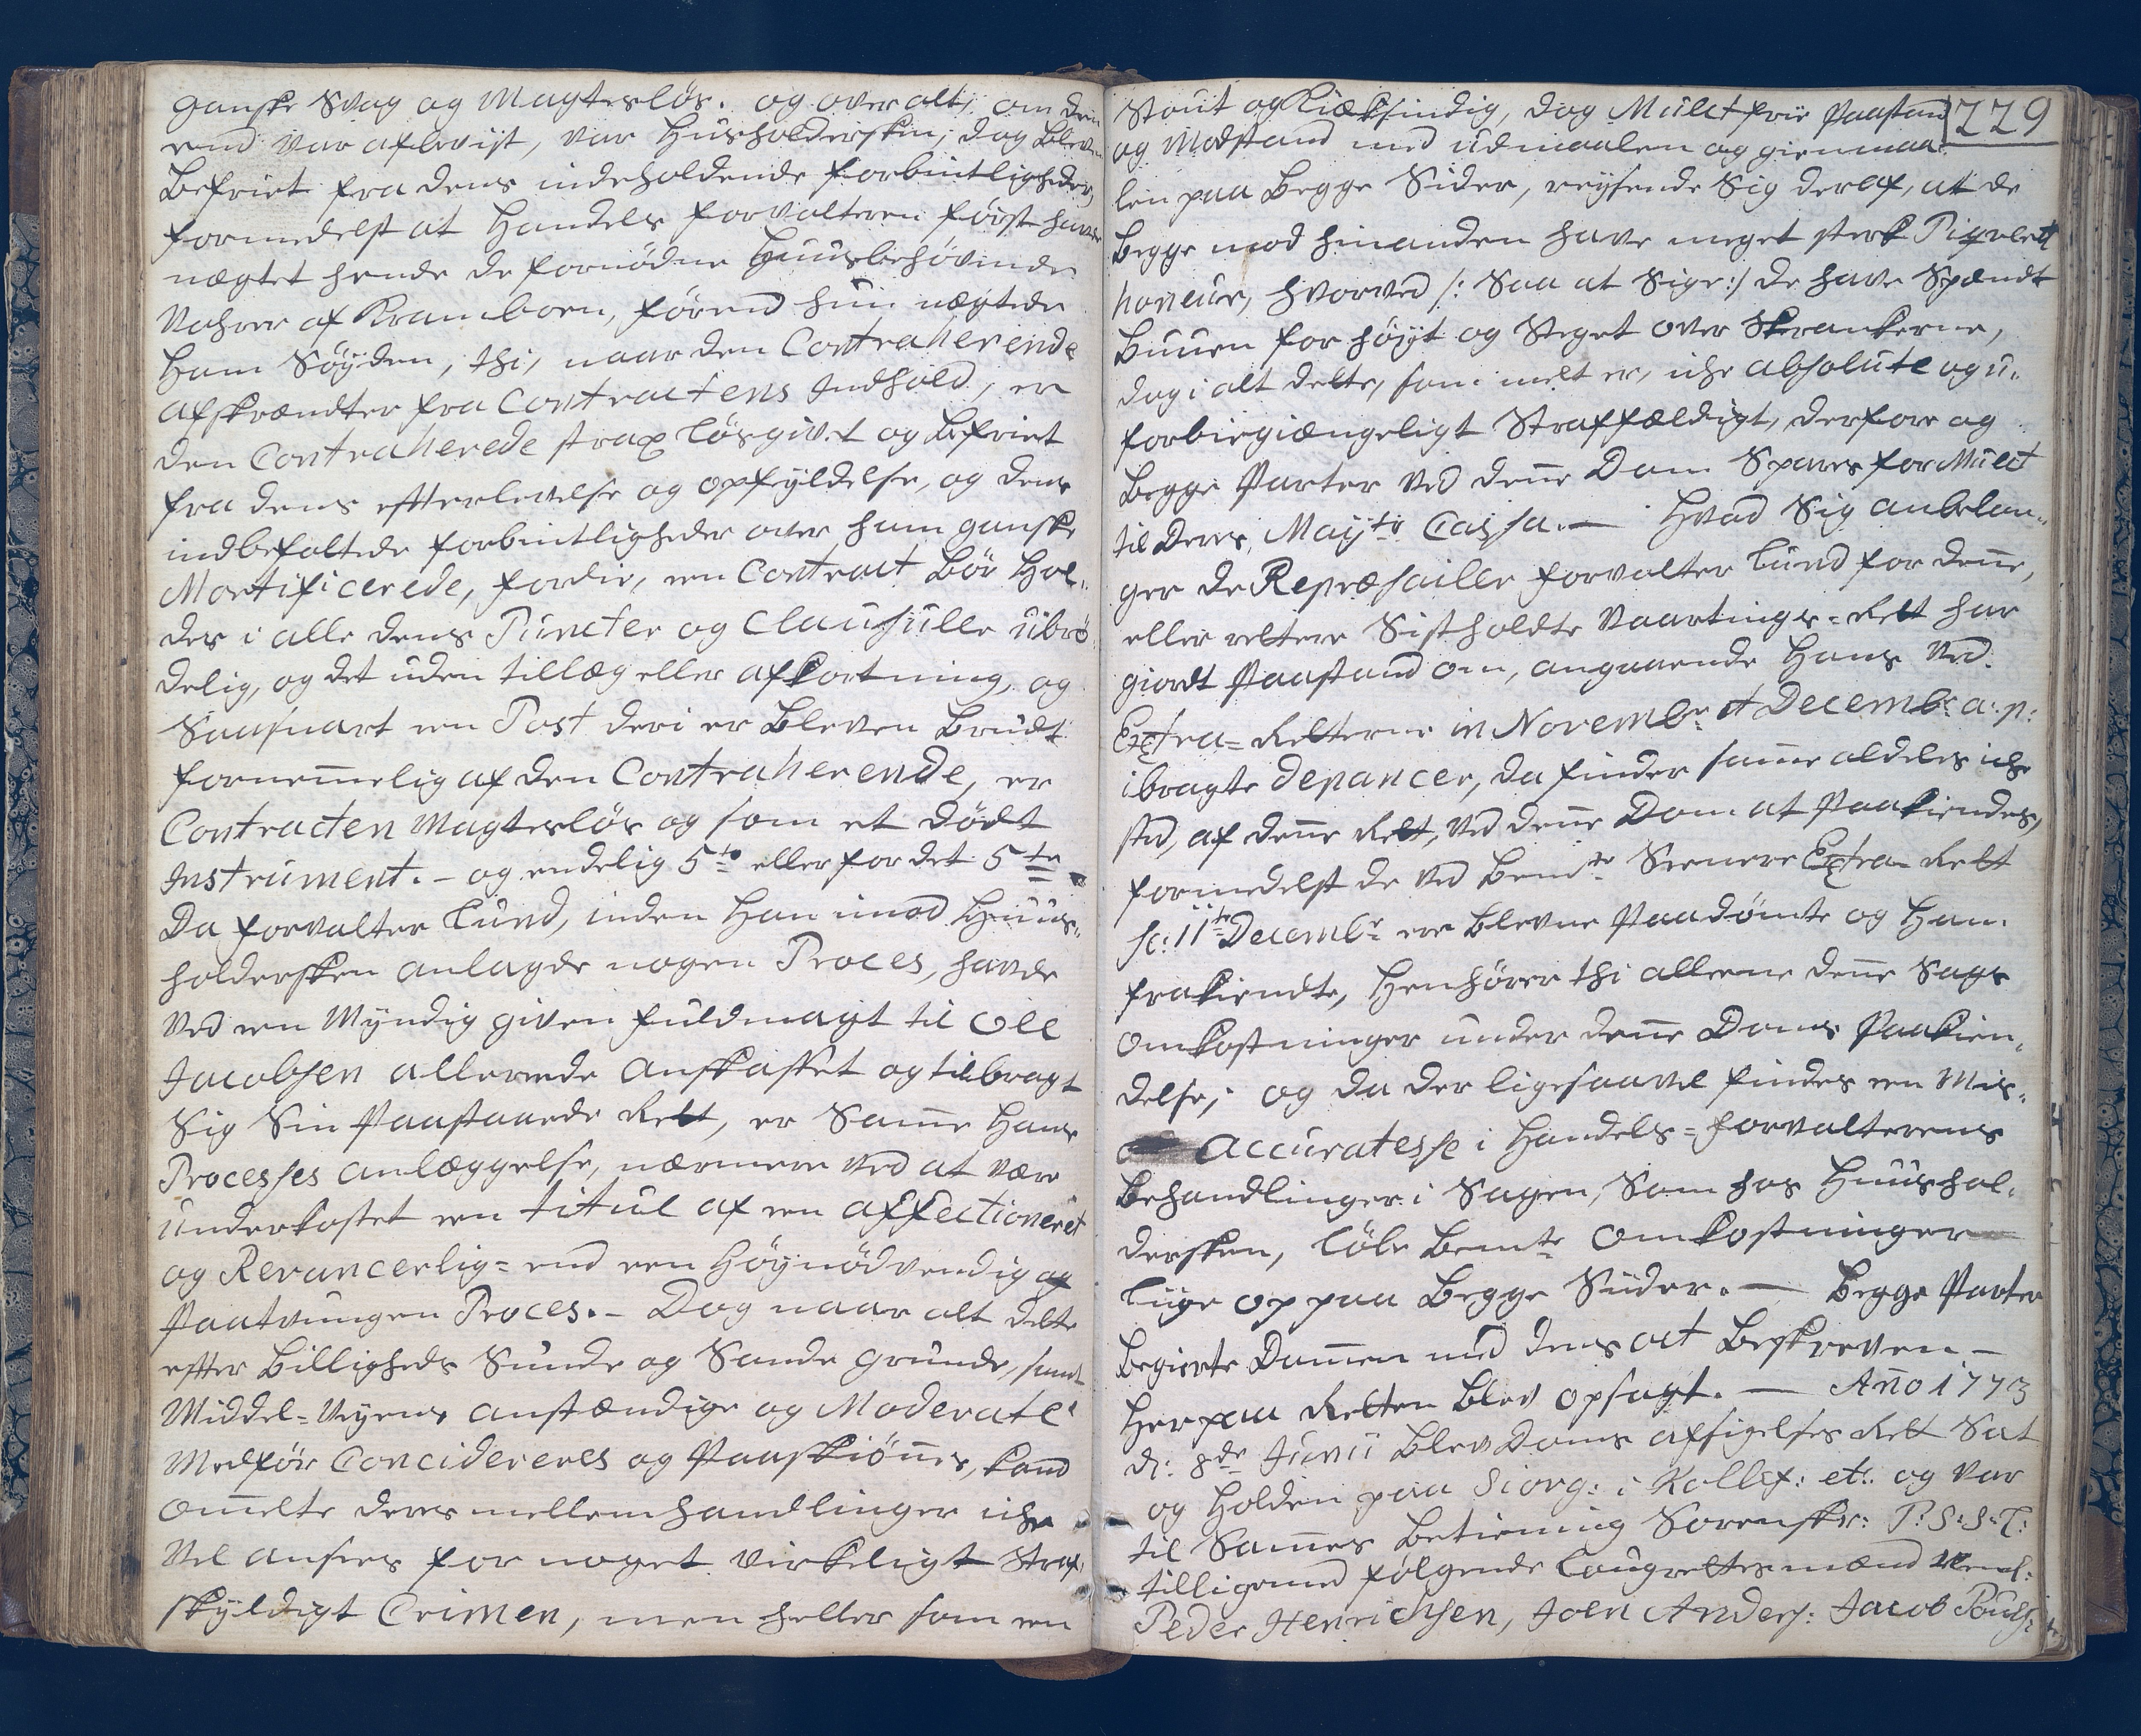 ganske Svag og Magtesløs. og over alt, om den
end var aflovist, var Husholderskin, dog bleven
Befriet fra dens indeholdende forbintligheder,
formedelst at Handels forvalteren først havde
nægtet hende de fornødne Huusbehövende
Vahrer af Kramboen, førend hun nægtede
Ham Söyden, thi, naar den Contraherende
afskrændter fra Contractens Indhold, er
den Contraherede strax lösgivet og befriet
fra dens efterlevelse og opfyldelse, og dens
indbefattede forbintligheder over ham ganske
Mortificerede, fordie, een Contract bör Hol„
des i alle dens Puncter og Clausuller ubrö„
delig, og det uden tillæg eller afkortning, og
Saasnart een Post deri er bleven brudt
fornemelig af den Contraherende, er
Contracten Magtesløs og som et dödt
Instrument. – og endelig 5to eller for det 5te
Da forvalter Lund, inden Han imod Huus„
holdersken anlagde nogen Proces, havde
ved een Myndig given fuldmagt til Ole
Jacobsen allerede anskaffet og tilbragt
Sig Sin Paastaaede Rett, er Samme Hans
Processes anlæggelse, nærmere ved at være
underkastet een titul af een affectioneret
og Revancerlig= end een Höynödvendig og
Paatvungen Proces. – Dog naar alt dette
efter Billigheds Sunde og Sande grunde, samt
Middel=Veyens anstændige og Moderate
Medför Concidereres og Paaskiönnes, kand
ommelte deres mellemhandlinger iche
vel ansees for noget virkeligt Straf„
skyldigt Crimen, men heller som een
229
Stout og Kiæksindig, dog Mulct frie Paastand
og Modstand med udmaalen og gienmaa„
len paa begge Sider, reysende Sig deraf, at de
begge mod hinanden have meget sterk Piqve
honeur, hvorved /: Saa at Sige :/ de have Spændt
Buuen for höyt og Steget over Skrankerne,
dog i alt dette, som melt er, iche absolute og u„
forbiegiængeligt Straffældigt, derfor og
begge Parter ved denne Dom Spares for Mulct
til Deres Mayts Cassa. — Hvad Sig anbelan„
ger de Repræsaille forvalter Lund for denne,
eller rettere Sistholdte Vaartings=Rett har
giordt Paastand om, angaaende Hans ved
Extra=Retterne in Novembr et Decembr a: p:
ibragte depancer, da finder samme aldeles iche
sted, af denne Rett, ved denne Dom at Paakiendes,
formedelst de ved bemte Seenere Extra Rett
sc: 11te Decembr ere blevne Paadömte og Ham
frakiendte, Henhörer thi alleene denne Sags
omkostninger under denne Doms Paakien„
delse; og da der ligesaavel findes een Mis„
accuratesse i Handels=forvalterens
behandlinger i Sagen, Som hos Huushol„
dersken, löbe bemte omkostninger
liige op paa begge Siider. — Begge Parter
begierte Dommen med dens act beskreven –
Herpaa Retten blev opsagt. — Año 1773
d: 8de Junii blev Doms afsigelses Rett Sat
og Holden paa Siorg: i Kollef: etc: og var
til Sammes betiening Sorenskr: P: S: S: T:
tilligemed fölgende Laugrettesmænd
Peder Henrichsen, Joen Anders: Jacob Pouls: